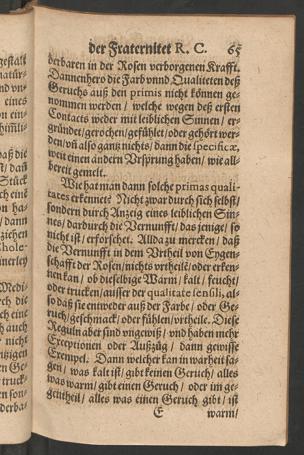 der Fraternitet R. C. 65
derbaren in der Rosen verborgenen Krafft.
Dannenhero die Farb vnnd Qualiteten deß
Geruchs auß den primis nicht können ge-
nommen werden / welche wegen deß ersten
Contacts weder mit leiblichen Sinnen / er-
gründet / gerochen / gefühlet / oder gehört wer-
den / vñ also gantz nichts / dann die specificæ,
weil einen andern Vrsprung haben / wie all-
bereit gemelt.
Wie hat man dann solche primas quali-
tates erkennet? Nicht zwar durch sich selbst /
sondern durch Anzeig eines leiblichen Sin-
nes / dardurch die Vernunfft / das jenige / so
nicht ist / erforschet. Allda zu mercken / daß
die Vernunfft in dem Vrtheil von Eygen-
schafft der Rosen / nichts vrtheile / oder erken-
nen kan / ob dieselbige Warm / kalt / feucht /
oder trucken / ausser der qualitate sensili, al-
so daß sie entweder auß der Farbe / oder Ge-
ruch / geschmack / oder fühlen / vrtheile. Diese
Reguln aber sind vngewiß / vnd haben mehr
Exceptionen oder Außzüg / dann gewisse
Exempel. Dann welcher kan in warheit sa-
gen / was kalt ist / gibt keinen Geruch / alles
was warm / gibt einen Geruch / oder im ge-
gentheil / alles was einen Geruch gibt / ist
E warm /